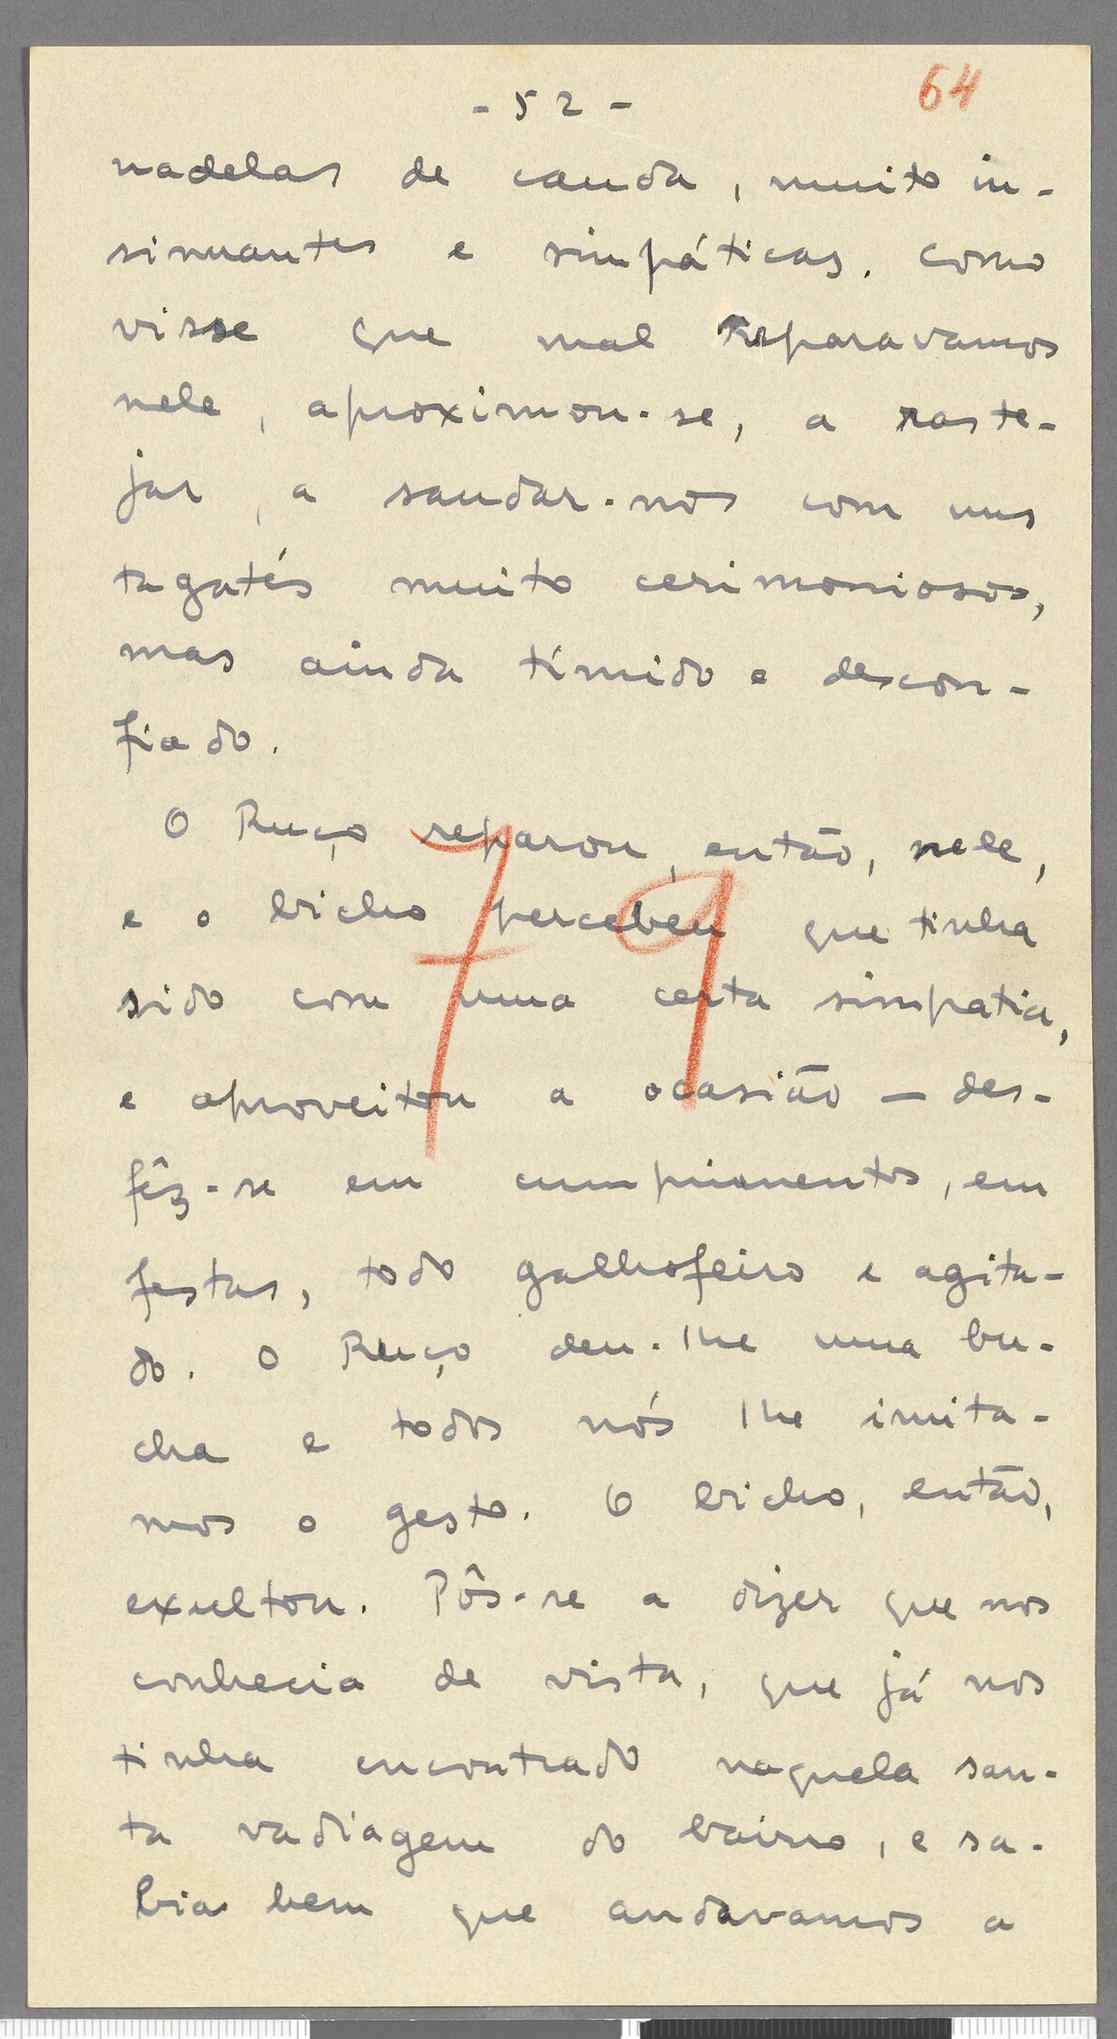 - 52 -
64
nadelas de cauda, muito in-
sinuantes e simpáticas. Como
visse que mal reparavamos
nele, aproximou-se, a raste-
jar, a saudar-nos com uns
tagatés muito cerimoniosos,
mas ainda tímido e descon-
fiado.
O Ruço reparou, então, nele,
e o bicho percebeu que tinha
sido com uma certa simpatia,
e aproveitou a ocasião — des-
fêz-se em cumprimentos, em
festas, todo galhofeiro e agita-
do. O Ruço deu-lhe uma bu-
cha e todos nós lhe imita-
mos o gesto. O bicho, então,
exultou. Pôs-se a dizer que nos
conhecia de vista, que já nos
tinha encontrado naquela san-
ta vadiagem do bairro, e sa-
bia bem que andavamos a
79